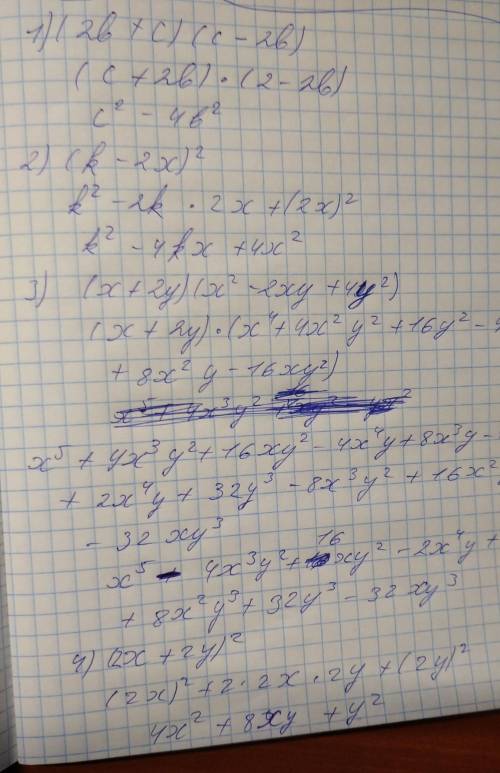 1) (2b + c) (c - 2b)
(c + 2b) · (2 - 2b)
c² - 4b²
2) (k - 2x)²
k² - 2k · 2x + (2x)²
k² - 4kx + 4x²
3) (x + 2y) (x² - 2xy + 4y²)
(x + 2y) · (x⁴ + 4x² y² + 16y² - 4
+ 8x² y - 16xy²)
x⁵ + 4x³ y² + 16xy² - 4x⁴y + 8x³y -
+ 2x⁴y + 32y³ - 8x³y² + 16x²y
- 32xy³
x⁵ - 4x³y² + 16xy² - 2x⁴y +
+ 8x²y³ + 32y³ - 32xy³
4) (2x + 2y)²
(2x)² + 2 · 2x · 2y + (2y)²
4x² + 8xy + y²